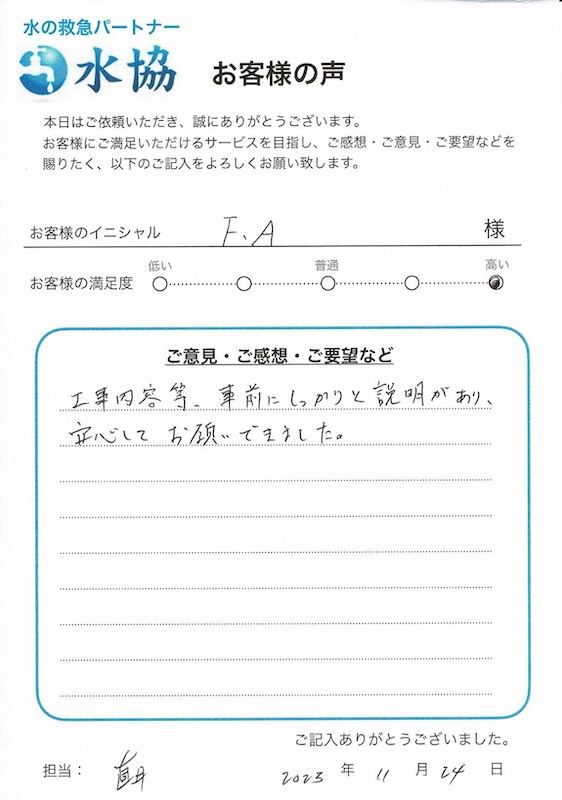 水の救急パートナー
水協 お客様の声
本日はご依頼いただき、誠にありがとうございます。
お客様にご満足いただけるサービスを目指し、ご感想・ご意見・ご要望などを
賜りたく、以下のご記入をよろしくお願い致します。
お客様のイニシャル F、A 様
低い 普通 高い
お客様の満足度
ご意見・ご感想・ご要望など
工事内容等、事前にしっかりと説明があり、
安心して お願いできました。
ご記入ありがとうございました。
担当： 2023 年 11 月 24 日